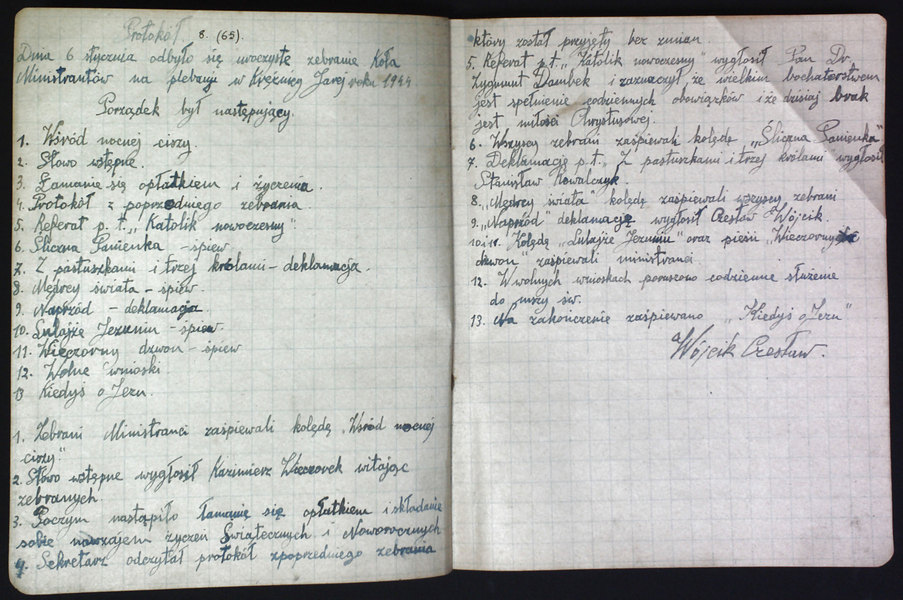 Protokół 8. (65).
Dnia 6 stycznia odbyło się uroczyste zebranie Koła
Ministrantów na plebanji w Krężnicy Jarej roku 1944
Porządek był następujący.
1. Wśród nocnej ciszy.
2. Słowo wstępne.
3. Łamanie się opłatkiem i życzenia.
4. Protokół z poprzedniego zebrania
5. Referat p. t. „Katolik nowoczesny"
6. Śliczna Panienka - śpiew
7. Z pastuszkami i trzej królami - deklamacja.
8. Mędrcy świata - śpiew.
9. Naprzód - deklamacja
10. Lulajże Jezuniu - śpiew
11. Wieczorny dzwon - śpiew
12. Wolne wnioski.
13 Kiedyś o Jezu.
1. Zebrani Ministranci zaśpiewali kolędę „Wśród nocnej
ciszy"
2. Słowo wstępne wygłosił Kazimierz Wieczorek witając
zebranych.
3. Poczym nastąpiło łamanie się opłatkiem i składanie
sobie nawzajem życzeń Świątecznych i Noworocznych
4. Sekretarz odczytał protokół zpoprzedniego zebrania
który został przyjęty bez zmian.
5. Referat p.t. „Katolik nowoczesny" wygłosił Pan Dr.
Zygmunt Dambek i zaznaczył, że wielkim bochaterstwem
jest spełnienie codziennych obowiązków i że dzisiaj brak
jest miłości Chrystusowej.
6. Wszyscy zebrani zaśpiewali kolędę „Śliczna Panienka"
7. Deklamację p.t. „Z pastuszkami i trzej królami wygłosił
Stanisław Kowalczyk.
8. „Mędrcy świata" kolędę zaśpiewali wszyscy zebrani
9. „Naprzód" deklamację wygłosił Czesław Wójcik.
10 i 11. Kolędę „Lulajże Jezuniu" oraz pieśń „Wieczorny
dzwon" zaśpiewali ministranci
12. W wolnych wnioskach poruszono codzienne służenie
do mszy św.
13. Na zakończenie zaśpiewano „Kiedyś o Jezu"
Wójcik Czesław.